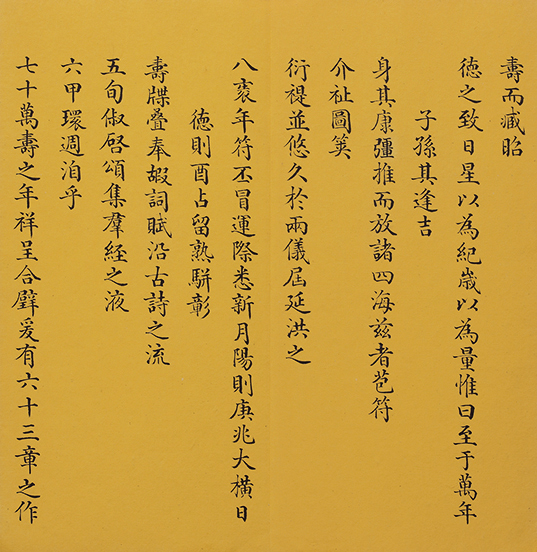 壽而臧昭
德之致日星以為紀歲以為量惟曰至于萬年
子孫其逢吉
身其康彊推而放諸四海兹者苞符
介祉圖箕
衍禔並悠久於兩儀屆延洪之
八袠年符丕冒運際悉新月陽則庚兆大橫日
德則酉占留熟駢彰
壽牒叠奉嘏詞賦沿古詩之流
五旬俶啓頌集羣經之液
六甲環週洎乎
七十萬壽之年祥呈合璧爰有六十三章之作